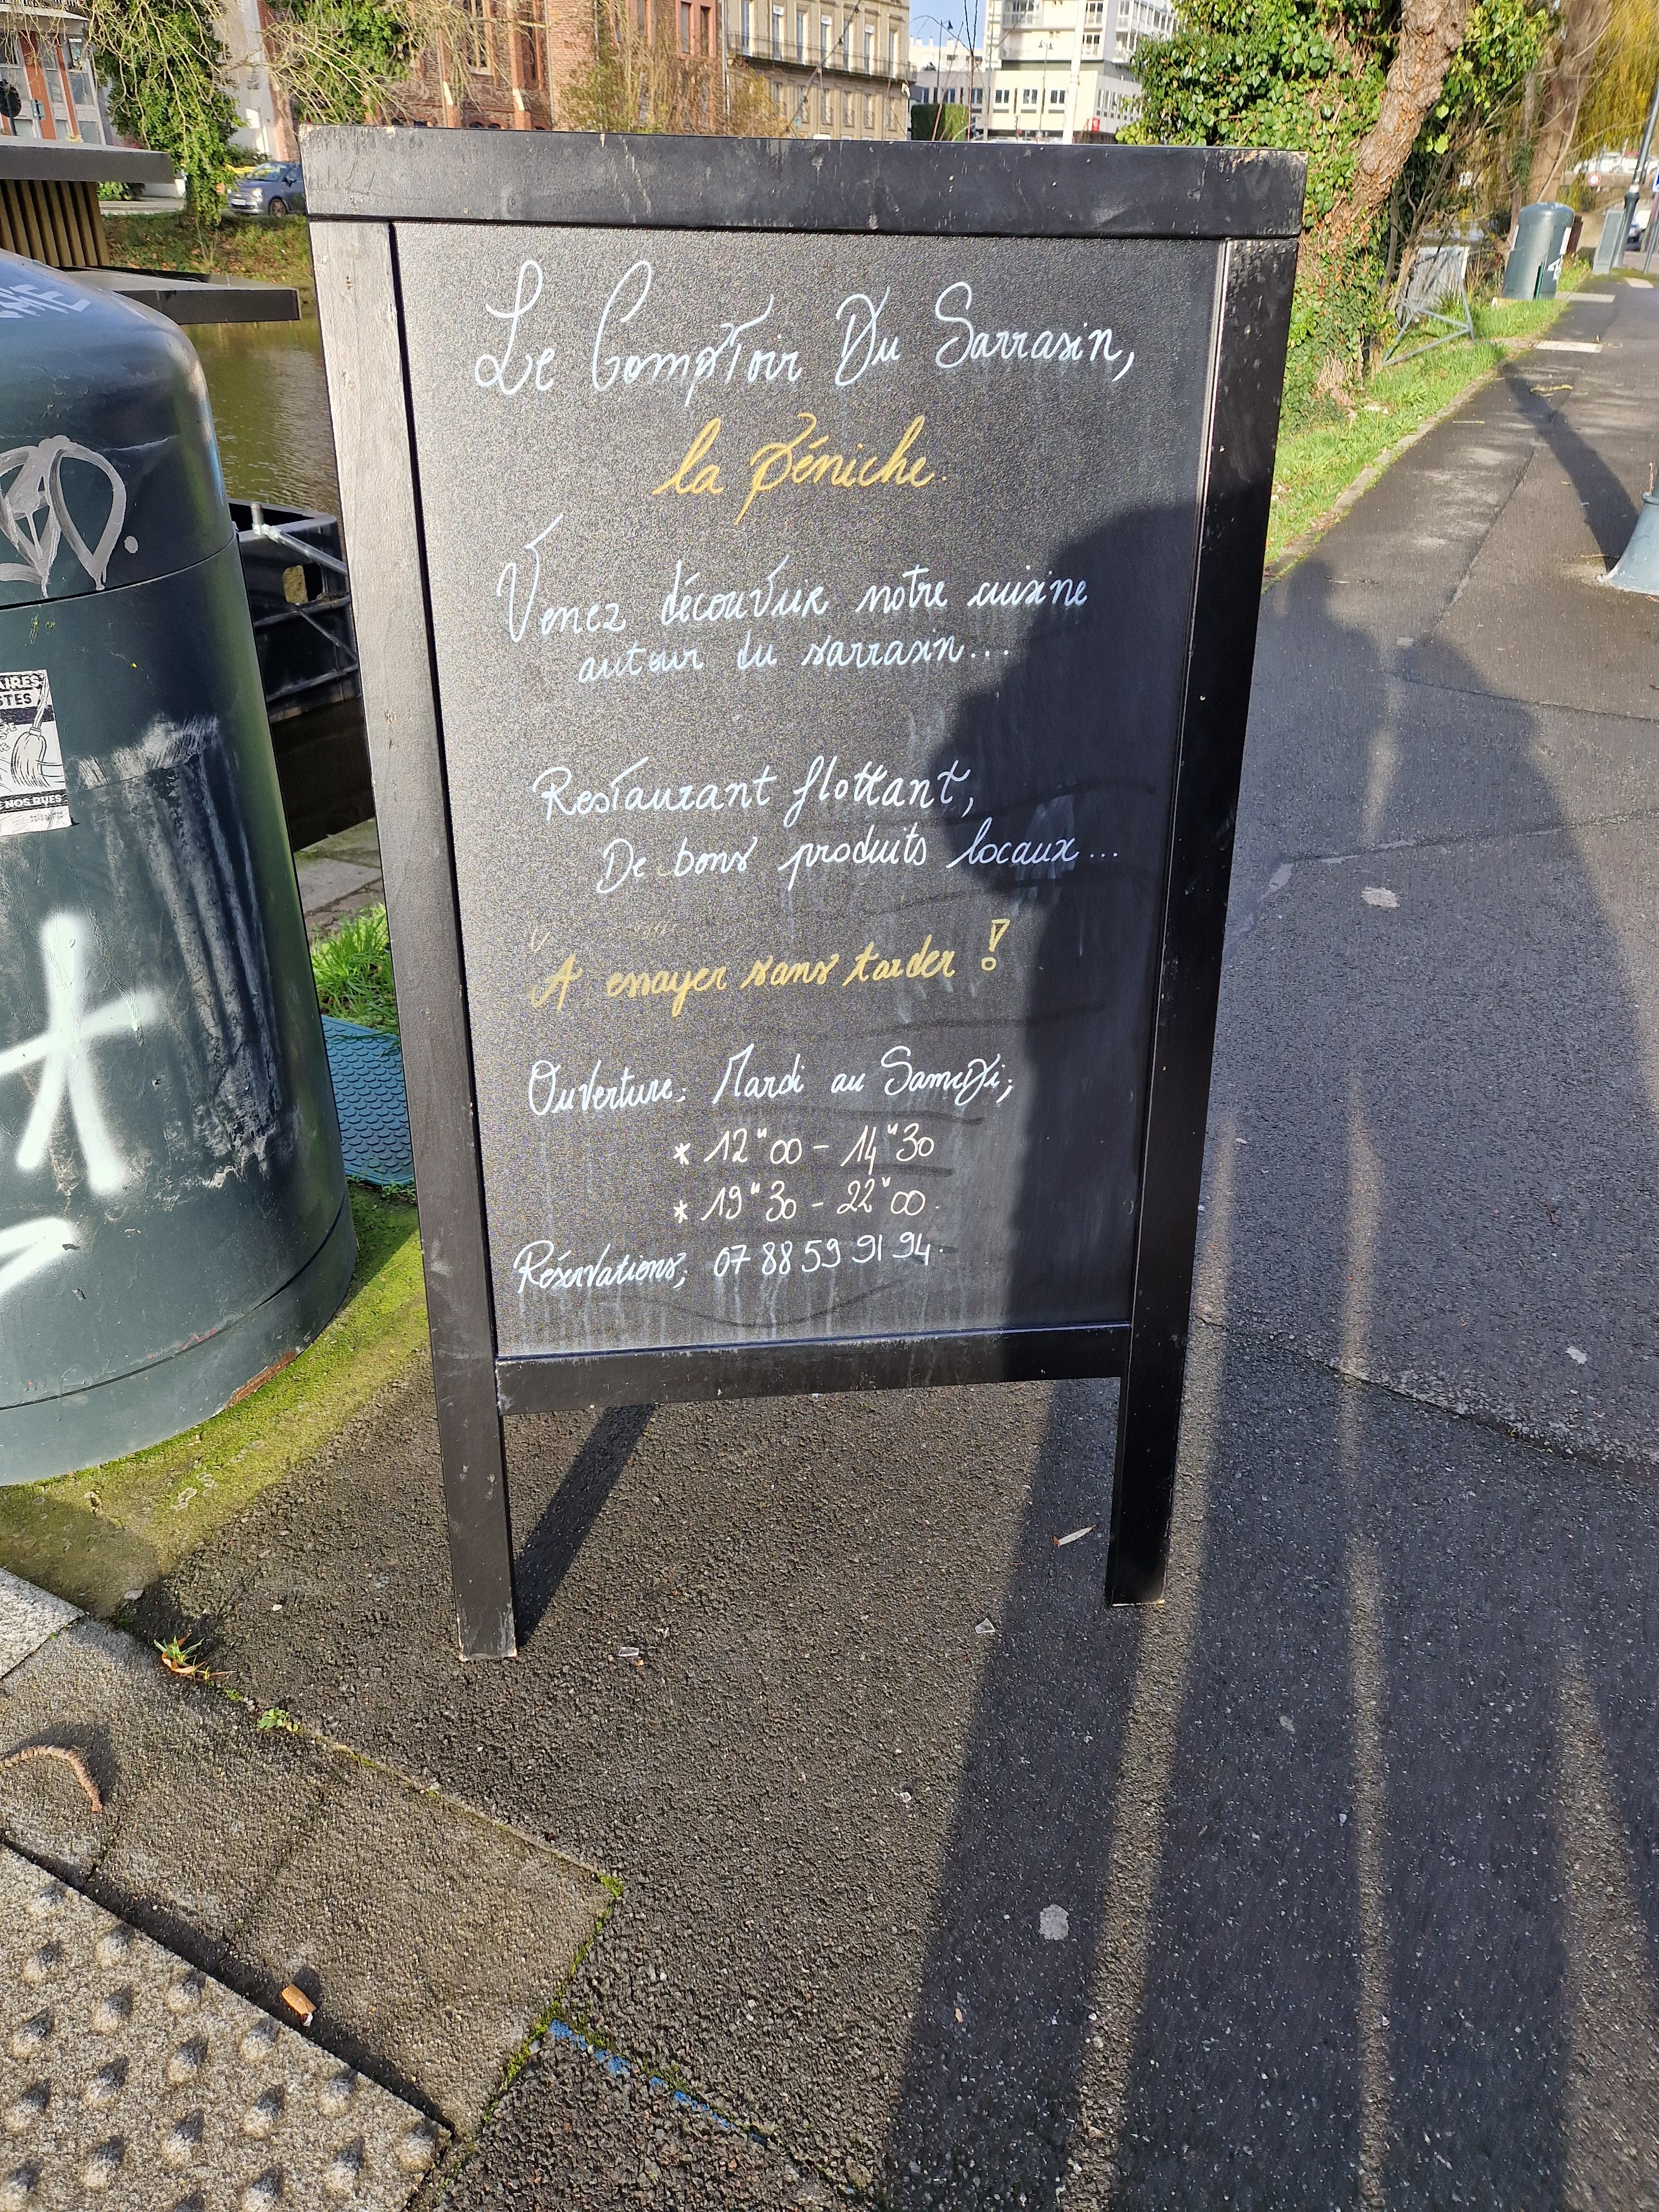 Le Comptoir Du Sarrasin,
la Péniche.
Venez découvrir notre cuisine
autour du sarrasin...
Restaurant flottant,
De bons produits locaux...
A essayer sans tarder !
Ouverture: Mardi au Samedi;
* 12"00 - 14"30
* 19"30 - 22"00.
Réservations; 07 88 59 91 94.
NOS RUES